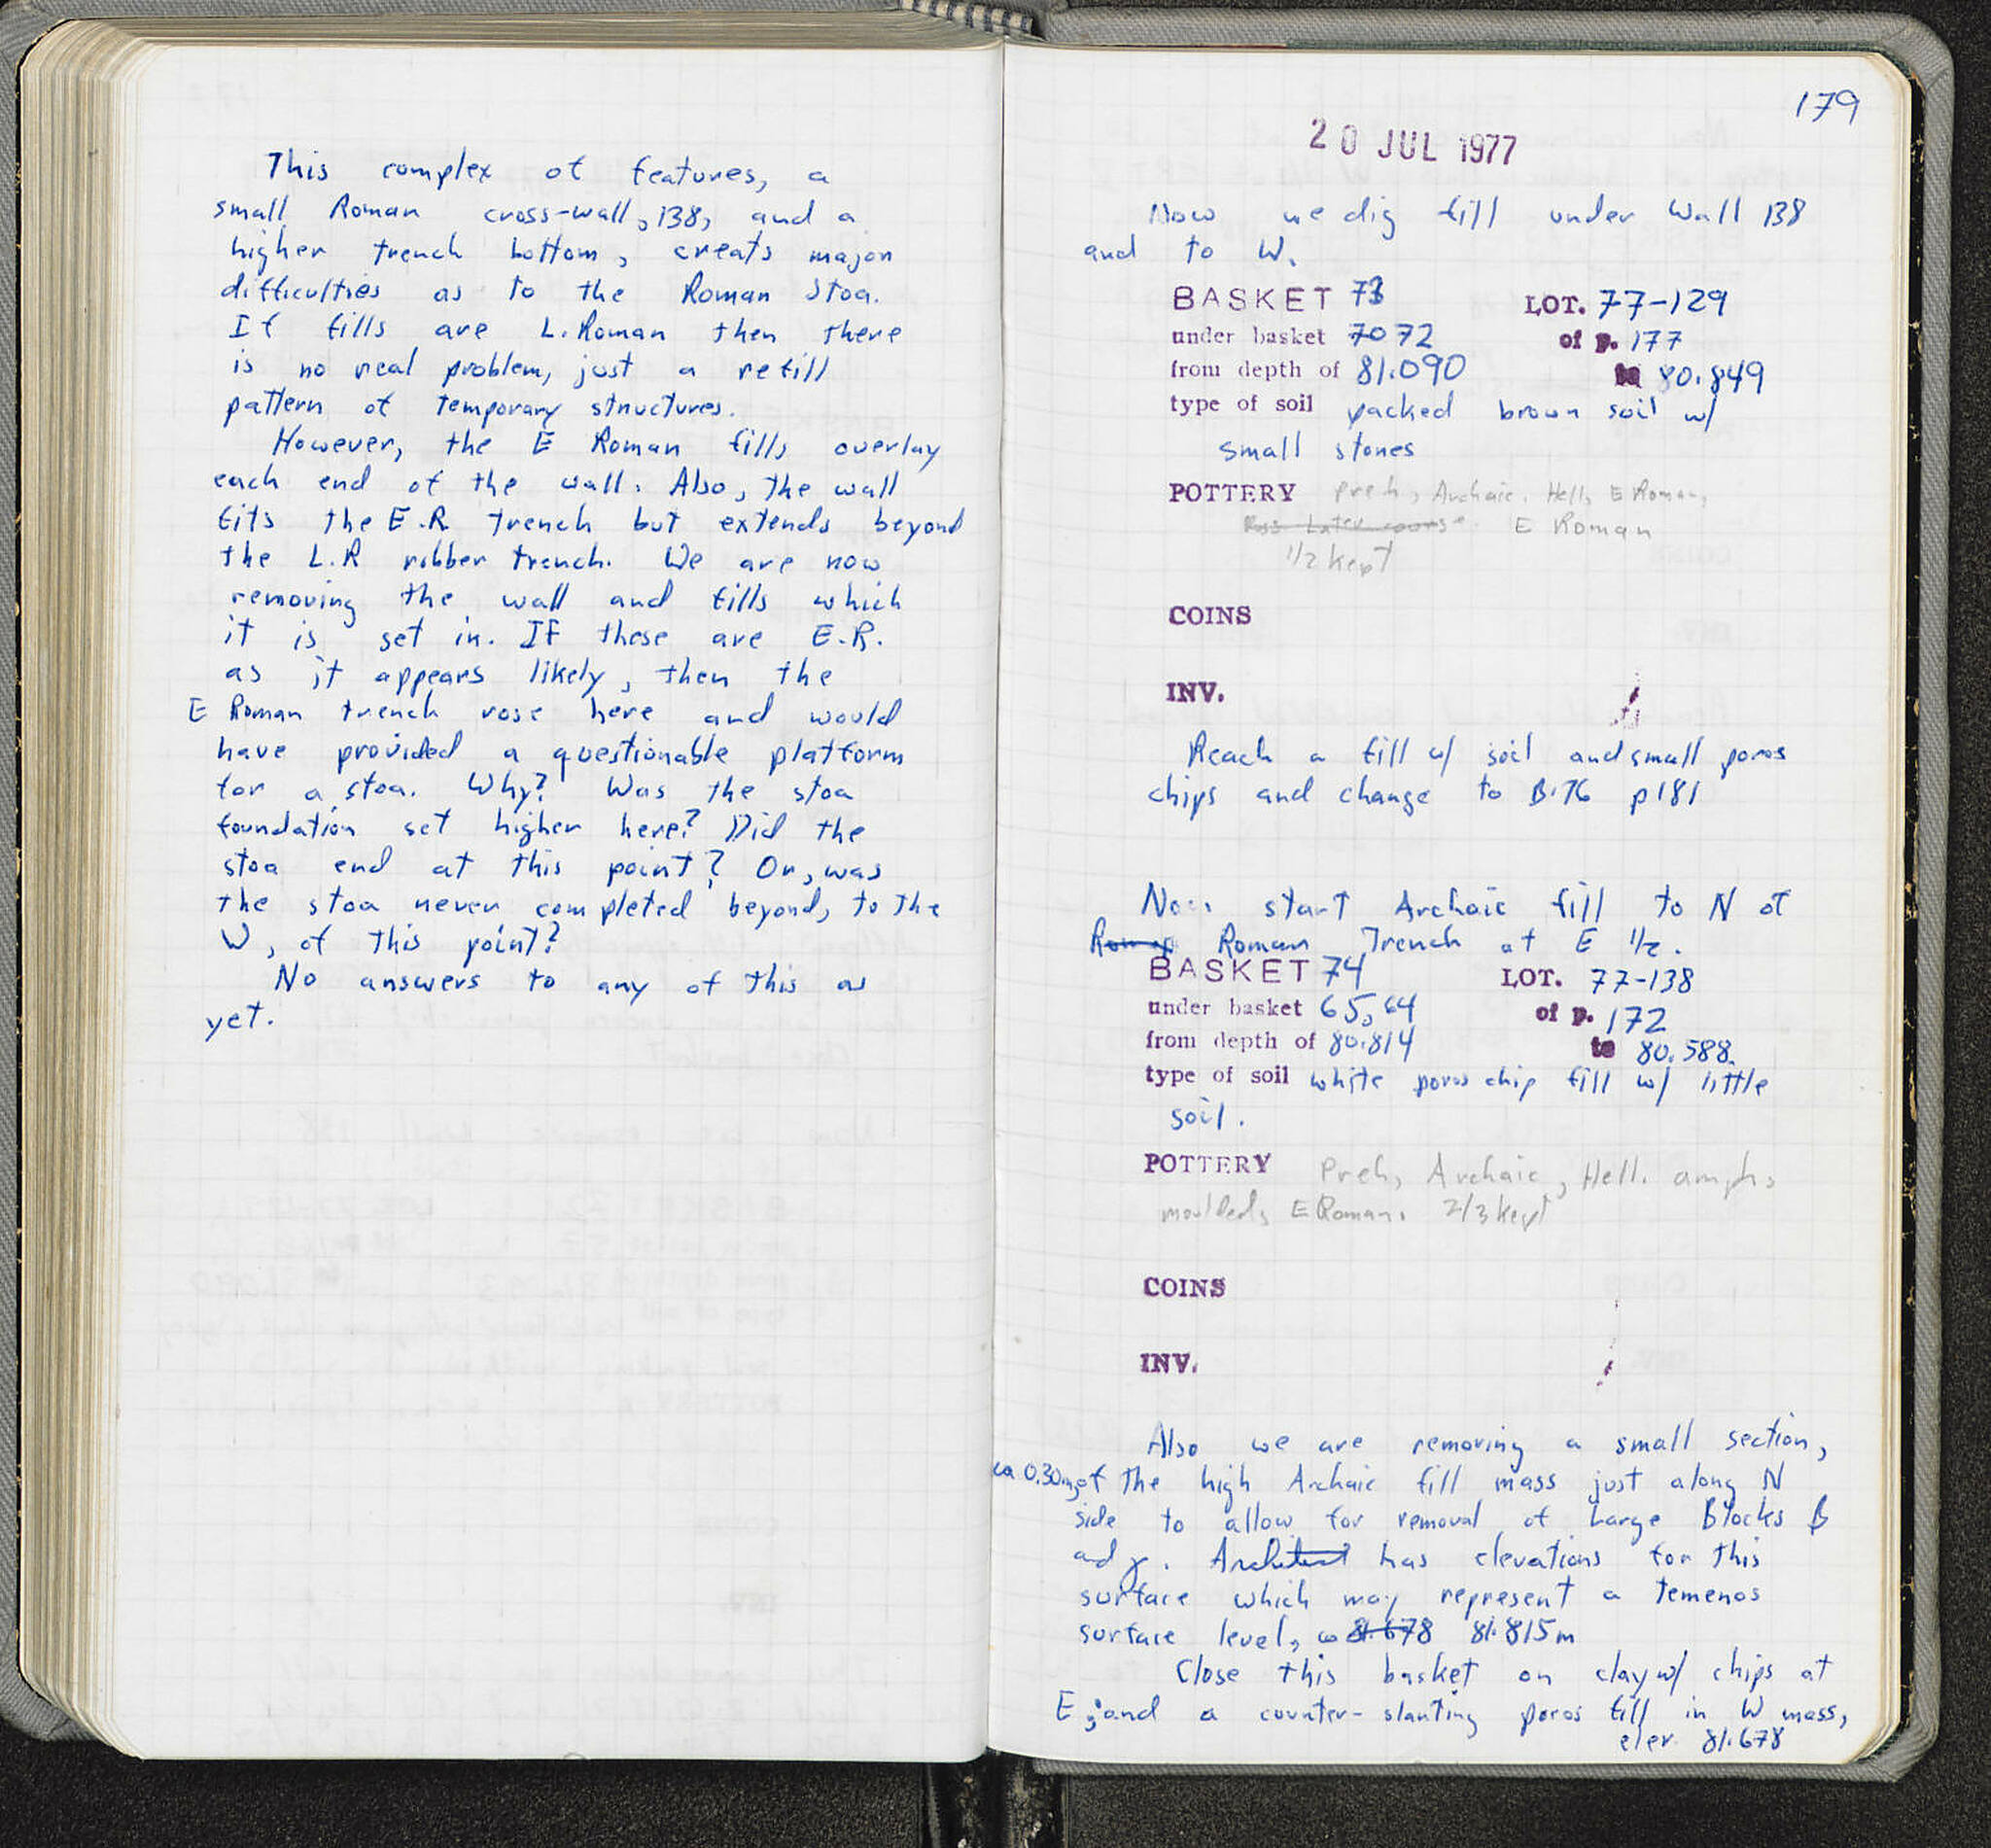 This complex of features, a
small Roman cross-wall, 138, and a
higher trench bottom, creats major
difficulties as to the Roman Stoa.
If fills are L. Roman then there
is no real problem, just a refill
pattern of temporary structures.
However, the E Roman fills overlay
each end of the wall. Also, the wall
fits the E.R trench but extends beyond
the L.R robber trench. We are now
removing the wall and fills which
it is set in. IF these are E.R.
as it appears likely, then the
E Roman trench rose here and would
have provided a questionable platform
for a stoa. Why? Was the stoa
foundation set higher here? Did the
stoa end at this point? Or, was
the stoa never completed beyond, to the
W, of this point?
No answers to any of this as
yet.
179
20 JUL 1977
Now we dig fill under Wall 138
and to W.
BASKET 73 LOT. 77-129
under basket 70 72 of p. 177
from depth of 81.090 to 80.849
type of soil packed brown soil w/
small stones
POTTERY Preh, Archaic, Hell, E Roman,
Later coarse. E Roman
1/2 kept
COINS
INV.
Reach a fill w/ soil and small poros
chips and change to B.76 p181
Now start Archaic fill to N of
Roman Roman Trench at E 1/2.
BASKET 74 LOT. 77-138
under basket 65, 64 of p. 172
from depth of 80.814 to 80.588.
type of soil white poros chip fill w/ little
soil.
POTTERY Preh, Archaic, Hell. amph,
moulded, E Roman. 2/3 kept
COINS
INV.
Also we are removing a small section,
ca 0.30m, of the high Archaic fill mass just along N
side to allow for removal of Large Blocks β
ad γ. Architect has elevations for this
surface which may represent a temenos
surface level, 81.678 81.815m
Close this basket on clay w/ chips at
E; and a counter-slanting poros fill in W mass,
elev. 81.678